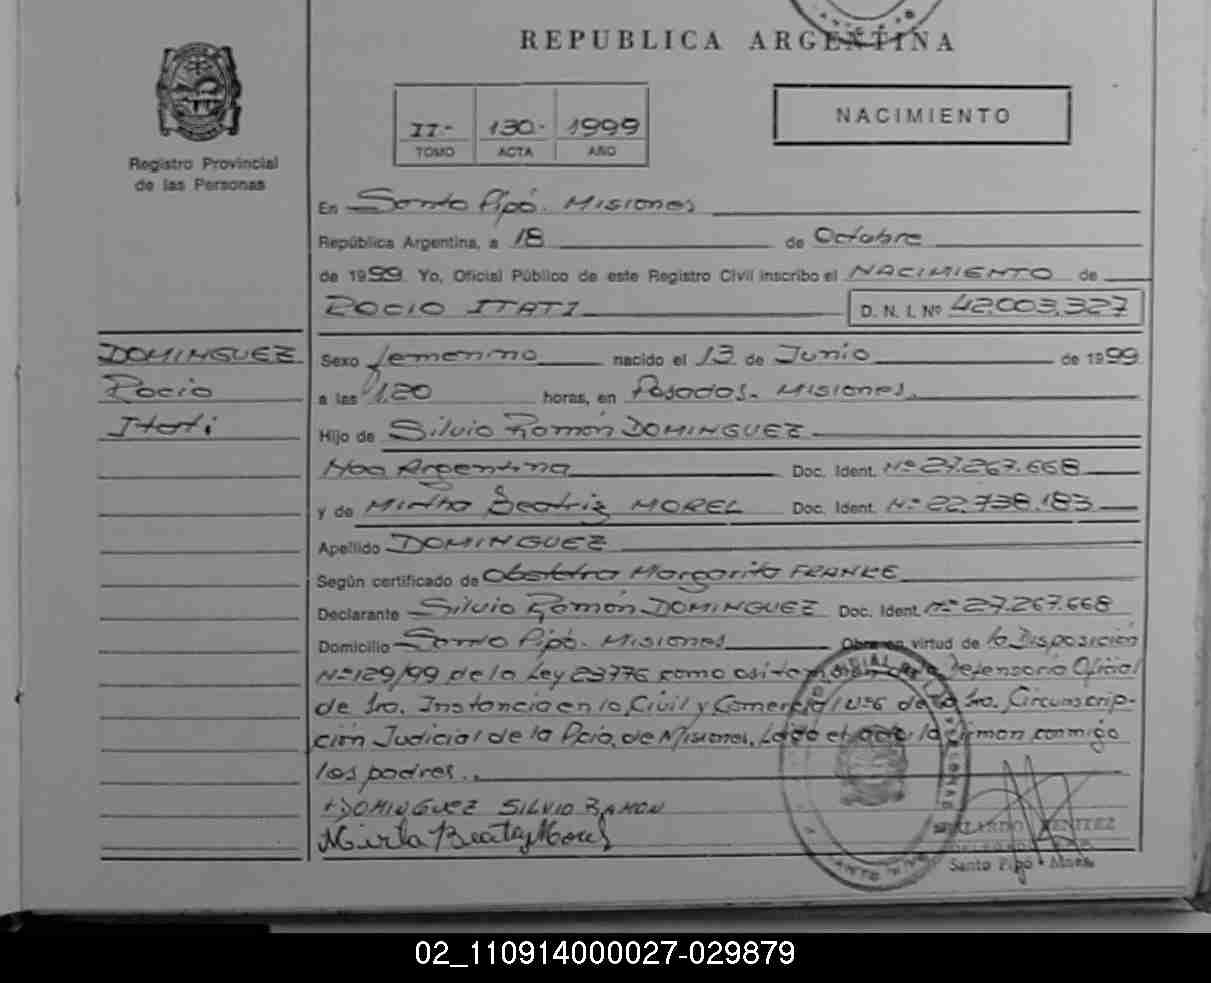 REPUBLICA ARGENTINA
II- 130- 1999
TOMO ACTA AÑO
NACIMIENTO
Registro Provincial
de las Personas
En Santo Pipó. Misiones
República Argentina, a 18 de Octubre
de 1999 Yo, Oficial Público de este Registro Civil inscribo el NACIMIENTO de
ROCIO ITATI D. N. I. Nº 42.003.327
DOMINGUEZ
Rocio
Itati
Sexo femenino nacido el 13 de Junio de 1999
a las 1,20 horas, en Posadas. Misiones.
Hijo de Silvio Ramón DOMINGUEZ
Nac Argentina Doc. Ident. Nº 27.267.668
y de Mirtha Beatriz MOREL Doc. Ident. Nº 22.738.183
Apellido DOMINGUEZ
Según certificado de Obstetra Margarita FRANKE
Declarante Silvio Ramón DOMINGUEZ Doc. Ident. Nº 27.267.668
Domicilio Santo Pipó. Misiones Obra en virtud de la Disposición
Nº 129/99 de la Ley 23776 como asi también de la Defensoria Oficial
de 1ra. Instancia en lo Civil y Comercial Nº6 de la 1ra. Circunscrip-
ción Judicial de la Pcia. de Misiones. Leida el acta la firman conmigo
los padres.
DOMINGUEZ SILVIO RAMON
Mirta Beatriz Morel
BENITEZ
Santo Pipó - Mnes.
SANTO PIPO
02_110914000027-029879